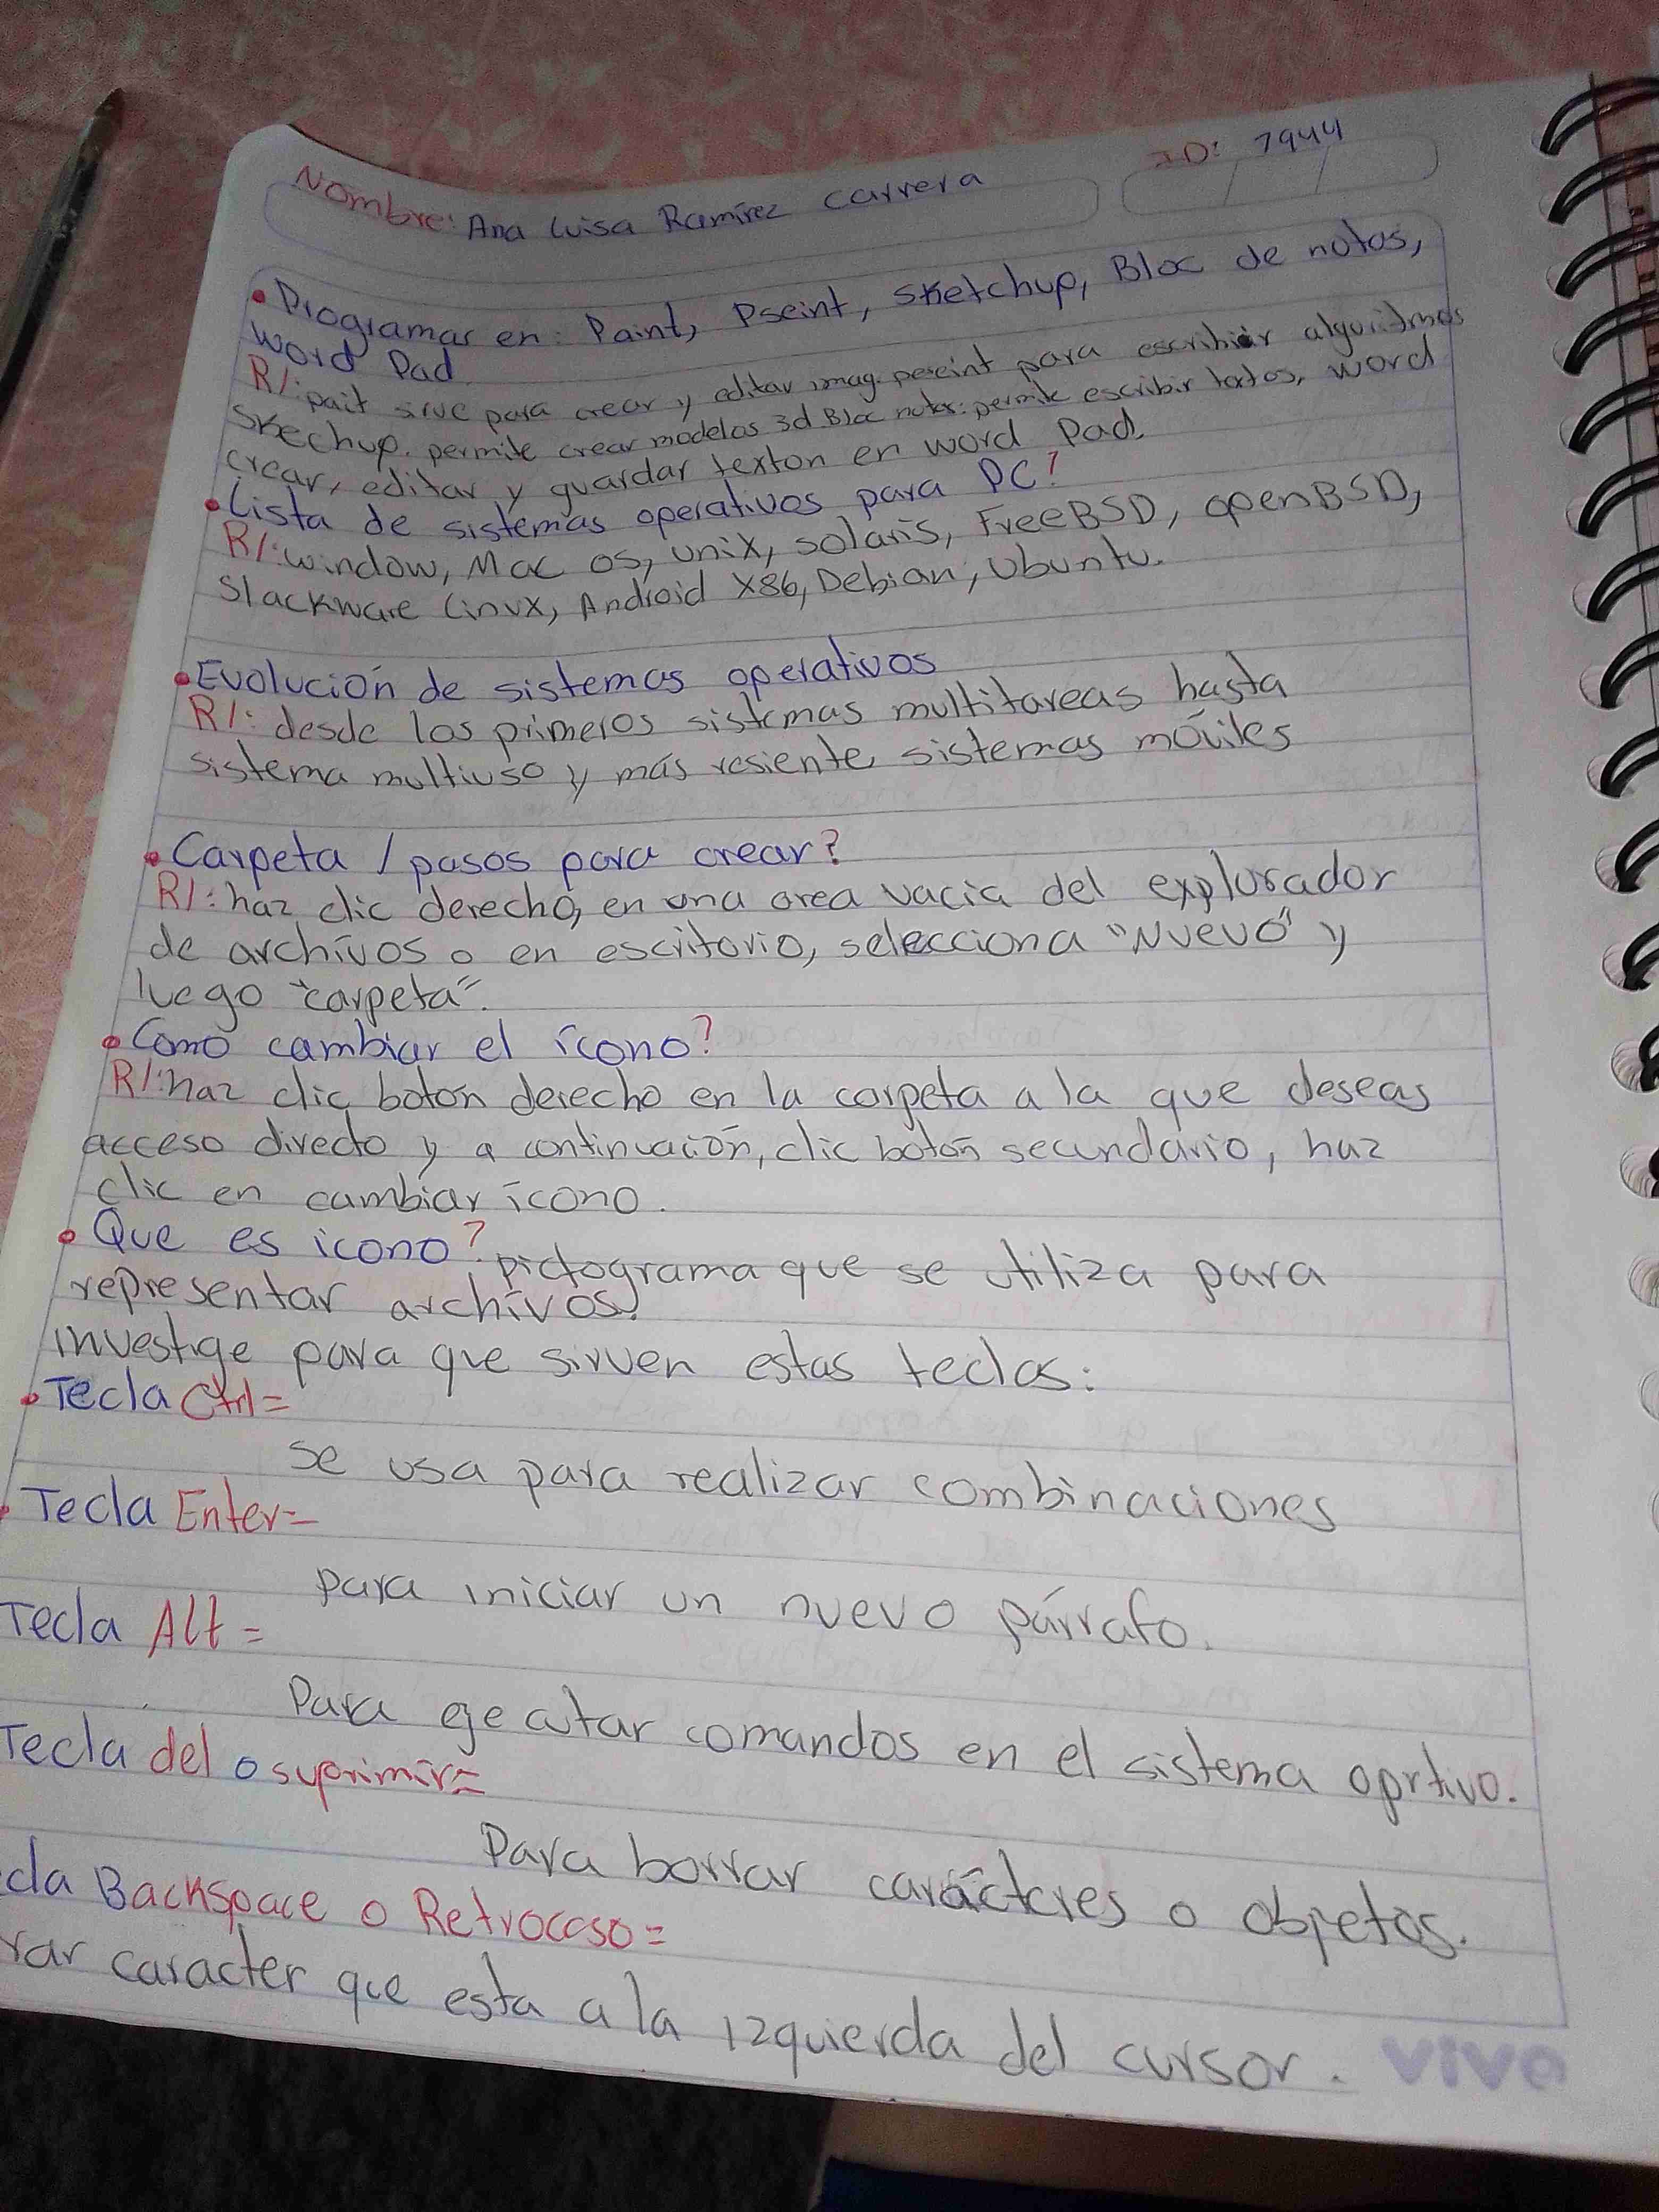 Nombre: Ana Luisa Ramírez Carrera
ID: 7944
• Programas en: Paint, Pseint, Sketchup, Bloc de notas,
Word Pad.
R/: pait sirve para crear y editar imag. peseint para escribir algoritmos
Skechup. permite crear modelos 3d Bloc notas: permite escribir textos, word
crear, editar y guardar texton en word Pad.
• Lista de sistemas operativos para PC?
R/: window, Mac os, unix, solaris, FreeBSD, openBSD,
Slackware Linux, Android X86, Debian, Ubuntu.
• Evolución de sistemas operativos
R/: desde los primeros sistemas multitareas hasta
sistema multiuso y más resiente sistemas móviles
• Carpeta / pasos para crear?
R/: haz clic derecho, en una area vacia del explorador
de archívos o en escritorio, selecciona "Nuevo" y
luego "carpeta".
• Como cambiar el ícono?
R/: haz clic botón derecho en la carpeta a la que deseas
acceso directo y a continuación, clic botón secundario, haz
clic en cambiar ícono.
• Que es icono? pictograma que se utiliza para
representar archívos.
investige para que sirven estas teclas:
• Tecla Ctrl=
se usa para realizar combinaciones
• Tecla Enter=
para iniciar un nuevo párrafo.
Tecla Alt=
Para ejecutar comandos en el sistema oprtivo.
Tecla del o suprimir=
Para borrar carácteres o objetos.
cla Backspace o Retroceso=
rar caracter que esta a la izquierda del cursor.
vivo